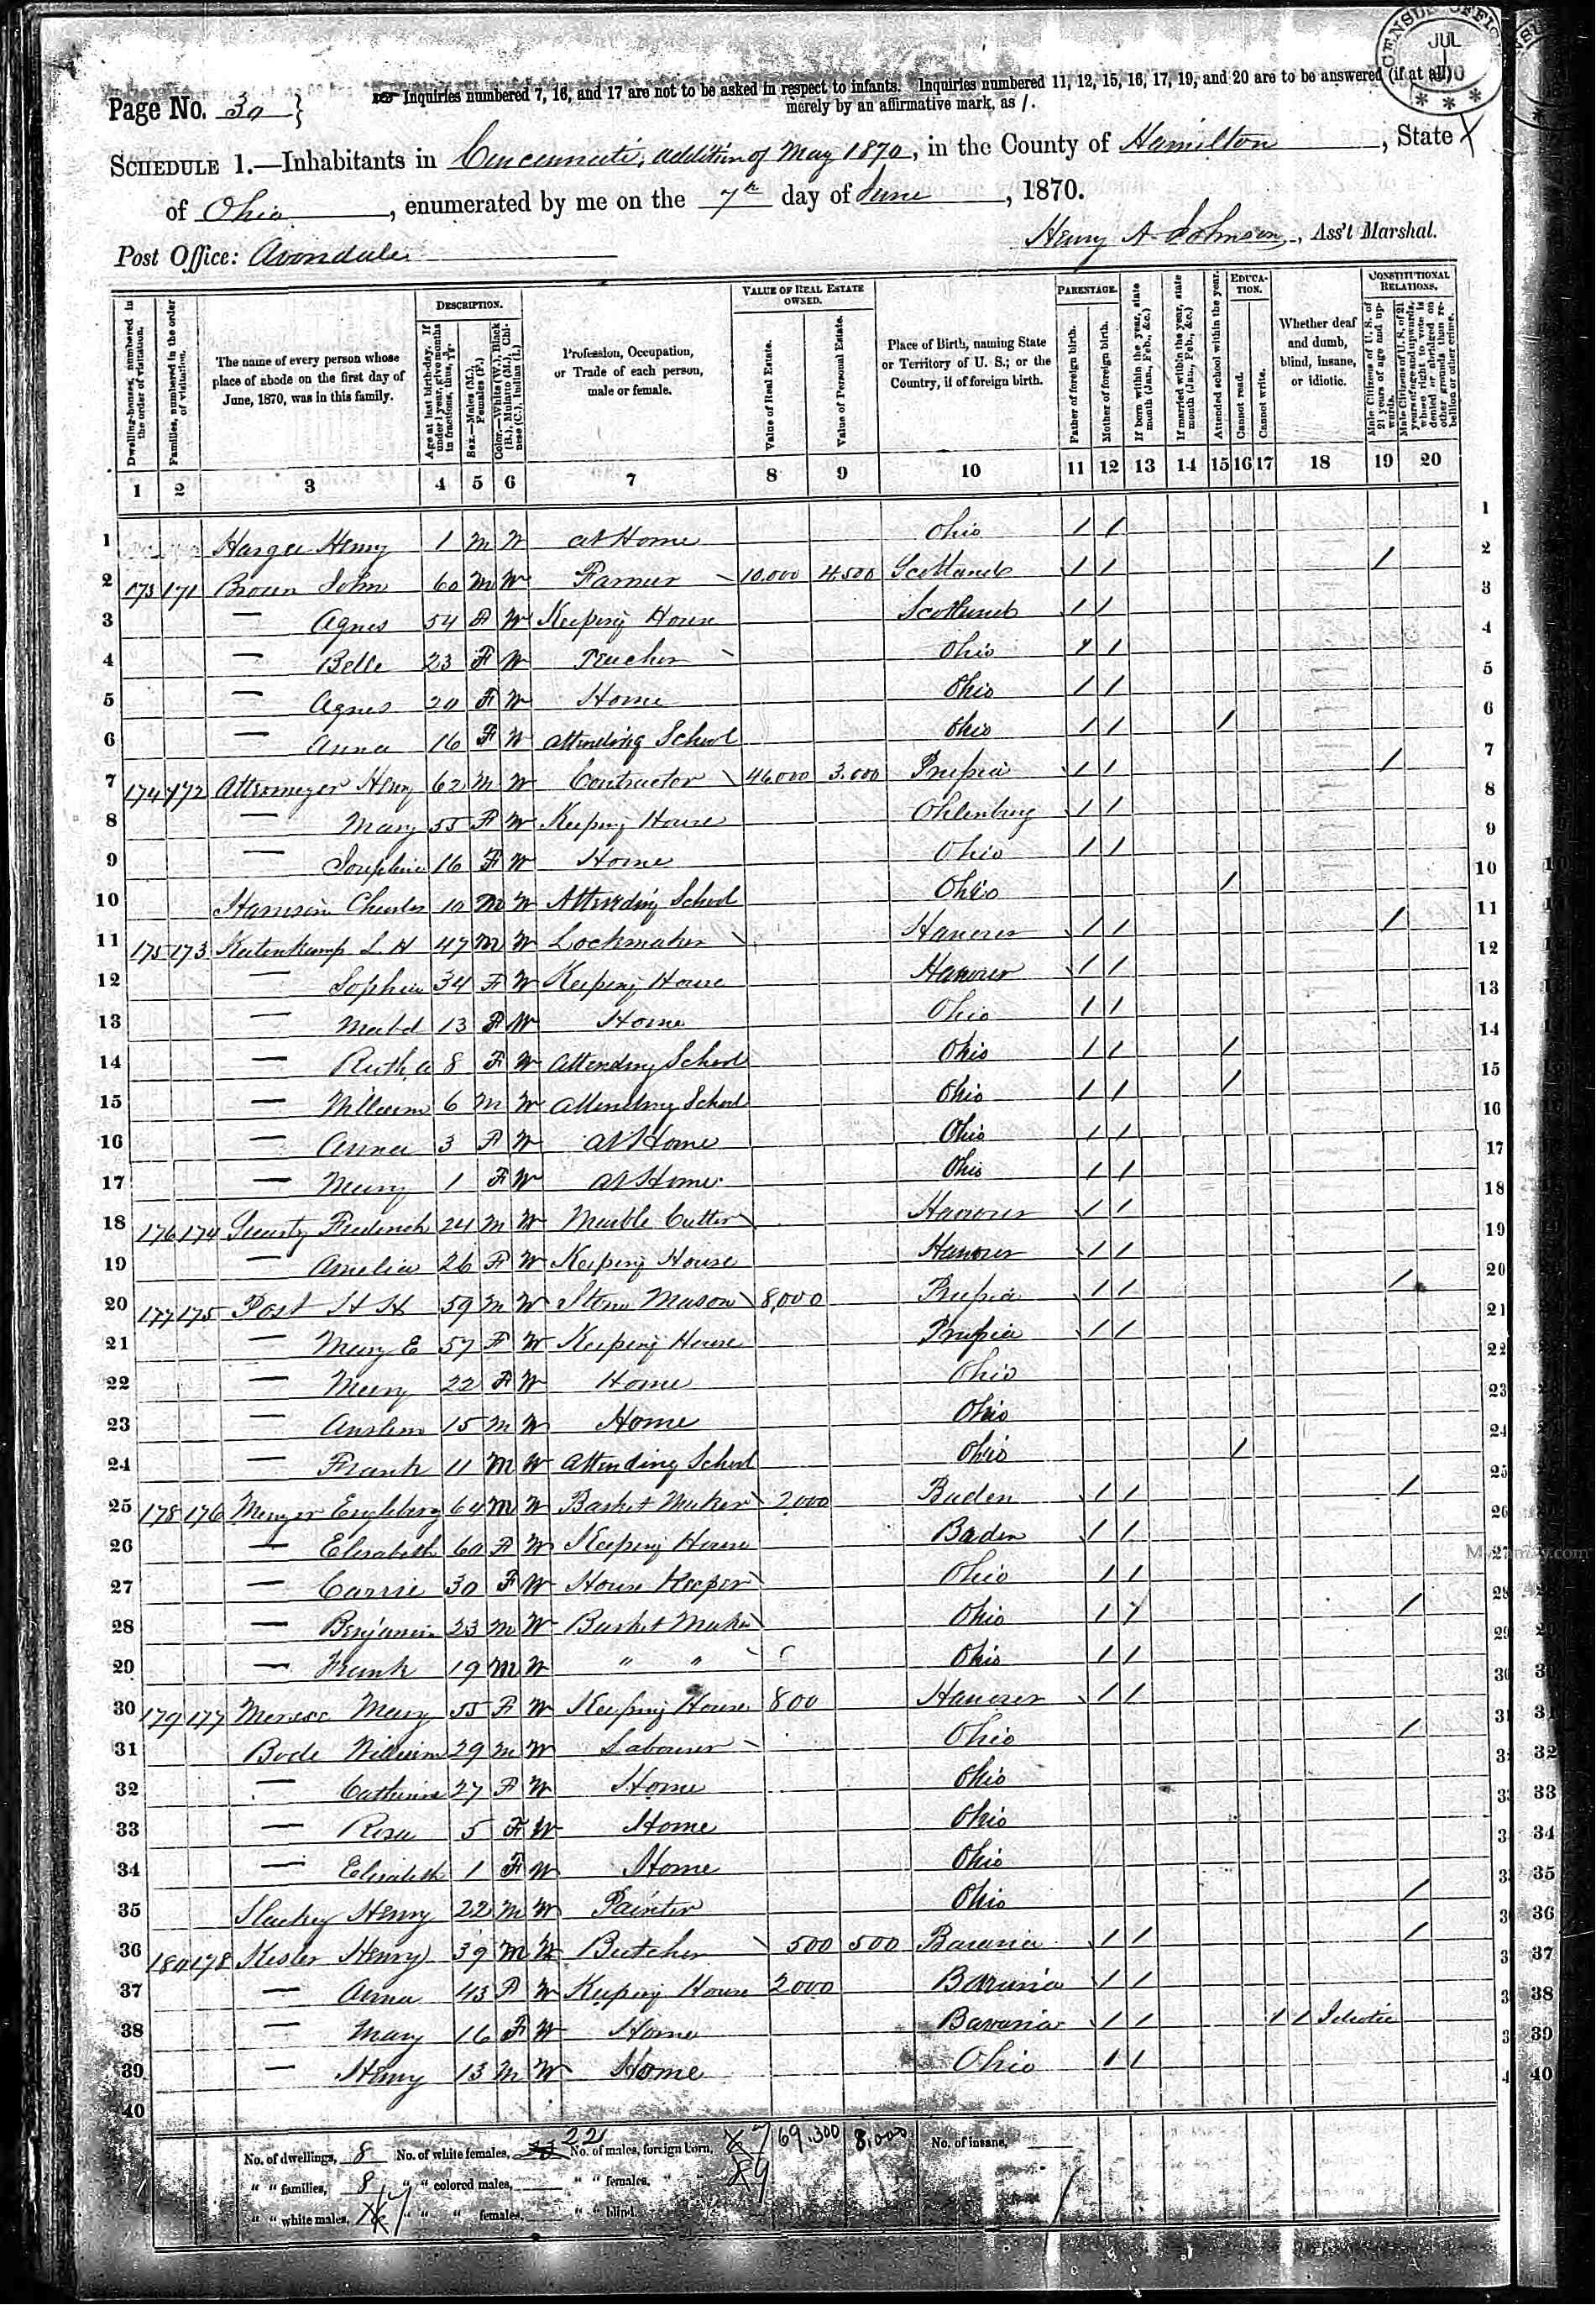 CENSUS OFFICE
JUL
1
***
Inquiries numbered 7, 16, and 17 are not to be asked in respect to infants. Inquiries numbered 11, 12, 15, 16, 17, 19, and 20 are to be answered (if at all)
merely by an affirmative mark, as /.
Page No. 30
SCHEDULE 1.—Inhabitants in Cincinnati, addition of May 1870, in the County of Hamilton, State
of Ohio, enumerated by me on the 7th day of June, 1870.
Post Office: Avondale
Henry A Johnson, Ass't Marshal.
Dwelling-houses, numbered in the order of visitation.
Families, numbered in the order of visitation.
The name of every person whose place of abode on the first day of June, 1870, was in this family.
DESCRIPTION.
Age at last birth-day. If under 1 year, give months in fractions, thus, 3/12.
Sex.—Males (M.), Females (F.)
Color.—White (W.), Black (B.), Mulatto (M.), Chinese (C.), Indian (I.)
Profession, Occupation, or Trade of each person, male or female.
VALUE OF REAL ESTATE OWNED.
Value of Real Estate.
Value of Personal Estate.
Place of Birth, naming State or Territory of U. S.; or the Country, if of foreign birth.
PARENTAGE.
Father of foreign birth.
Mother of foreign birth.
If born within the year, state month (Jan., Feb., &c.)
If married within the year, state month (Jan., Feb., &c.)
Attended school within the year.
EDUCATION.
Cannot read.
Cannot write.
Whether deaf and dumb, blind, insane, or idiotic.
CONSTITUTIONAL RELATIONS.
Male Citizens of U. S. of 21 years of age and upwards.
Male Citizens of U. S. of 21 years of age and upwards, whose right to vote is denied or abridged on other grounds than rebellion or other crime.
1 2 3 4 5 6 7 8 9 10 11 12 13 14 15 16 17 18 19 20
1 Henry 1 M W at Home Ohio / / 1
2 173 171 Brown John 60 M W Farmer 10,000 4500 Scotland / / / 2
3 — Agnes 54 F W Keeping House Scotland / / 3
4 — Belle 23 F W Teacher Ohio / / 4
5 — Agnes 20 F W Home Ohio / / 5
6 — Anna 16 F W Attending School Ohio / / / 6
7 174 172 Henry 62 M W Contractor 46,000 3,000 Prussia / / / 7
8 — Mary 55 F W Keeping House / / 8
9 — Josephine 16 F W Home Ohio / / 9
10 Harrison Charles 10 M W Attending School Ohio / 10
11 175 173 L H 47 M W Lockmaker Hanover / / / 11
12 — Sophia 34 F W Keeping House Hanover / / 12
13 — 13 F W Home Ohio / / 13
14 — Ruth A 8 F W Attending School Ohio / / / 14
15 — William 6 M W Attending School Ohio / / / 15
16 — Anna 3 F W at Home Ohio / / 16
17 — Mary 1 F W at Home Ohio / / 17
18 176 174 Frederick 24 M W Marble Cutter Hanover / / 18
19 — Amelia 26 F W Keeping House Hanover / / 19
20 177 175 Post H H 59 M W Stone Mason 8,000 Prussia / / / 20
21 — Mary E 57 F W Keeping House Prussia / / 21
22 — Mary 22 F W Home Ohio 22
23 — Anslem 15 M W Home Ohio 23
24 — Frank 11 M W Attending School Ohio / 24
25 178 176 W Basket Maker 2000 Baden / / / 25
26 — Elisabeth 60 F W Keeping House Baden / / 26
27 — Carrie 30 F W House Keeper Ohio / / 27
28 — Benjamin 23 M W Basket Maker Ohio / / / 28
29 — Frank 19 M W " " Ohio / / 29
30 179 177 Mary 55 F W Keeping House 800 Hanover / / 30
31 Bode William 29 M W Labourer Ohio / 31
32 — Catherine 27 F W Home Ohio
33 — Rosa 5 F W Home Ohio
34 — Elisabeth 1 F W Home Ohio
35 Henry 22 M W Painter Ohio /
36 180 178 Kesler Henry 39 M W Butcher 500 500 Bavaria / / /
37 — Anna 43 F W Keeping House 2000 Bavaria / /
38 — Mary 16 F W Home Bavaria / / / / Idiotic
39 — Henry 13 M W Home Ohio / /
40
No. of dwellings, 8 No. of white females, 22 No. of males, foreign born, 7 69,300 8,000 No. of insane,
" " families, 8 " " colored males, " " females, " "
" " white males, 17 " " " females, " " blind.
MyFamily.com